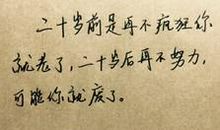 二十岁前是再不疯狂你
就老了,二十岁后再不努力,
可能你就废了。